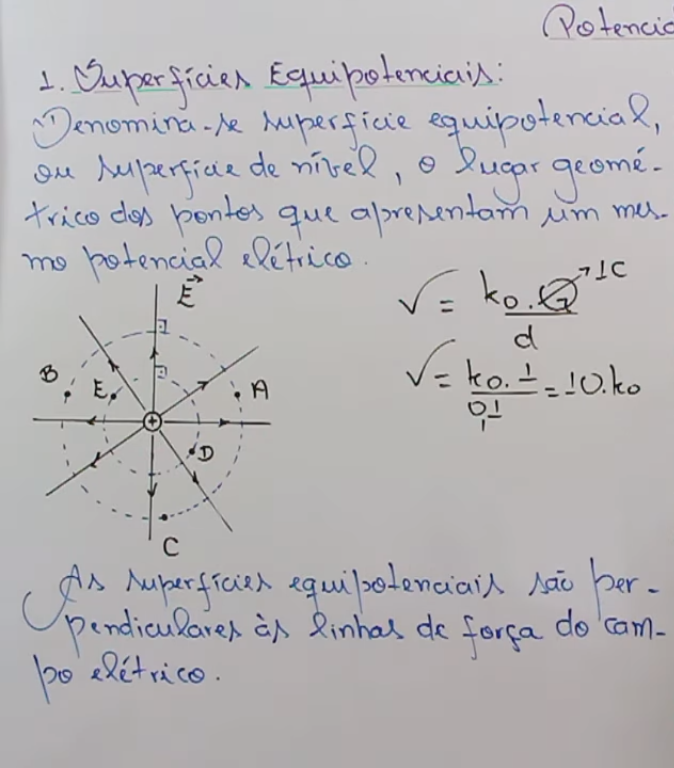 Potencia
1. Superfícies Equipotenciais:
Denomina-se superfície equipotencial,
ou superfície de nível, o lugar geomé-
trico dos pontos que apresentam um mes-
mo potencial elétrico.
E⃗
V = k₀.Q → 1C
d
V = k₀.1 = 10.k₀
0,1
B
E
A
+
D
C
As superfícies equipotenciais são per-
pendiculares às linhas de força do cam-
po elétrico.